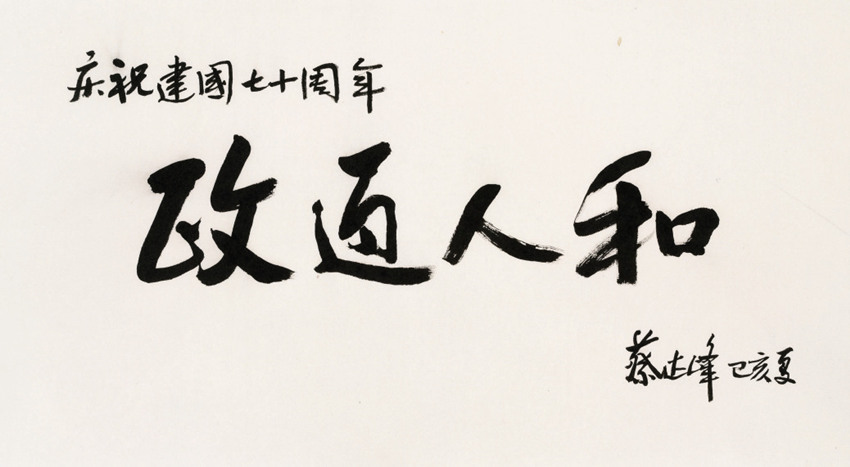 庆祝建國七十周年
政通人和
蔡达峰 己亥夏